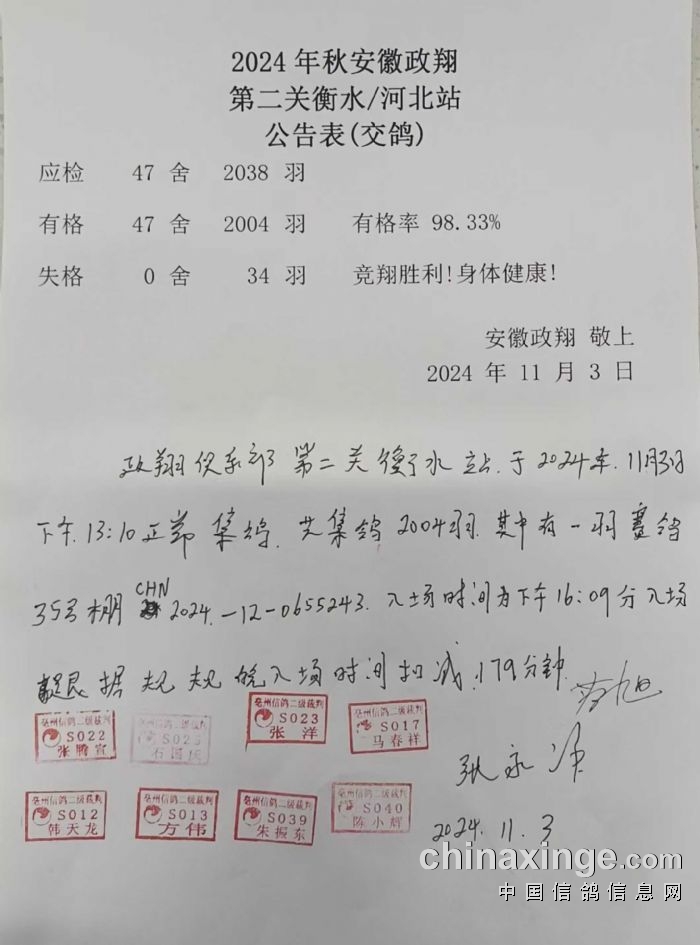 2024 年秋安徽政翔
第二关衡水/河北站
公告表(交鸽)
应检 47 舍 2038 羽
有格 47 舍 2004 羽 有格率 98.33%
失格 0 舍 34 羽 竞翔胜利!身体健康!
安徽政翔 敬上
2024 年 11 月 3 日
政翔俱乐部第二关衡水站.于2024年.11月3日
下午.13:10正常集鸽.共集鸽2004羽.其中有一羽赛鸽
35号棚CHN 2024.-12-0655243.入场时间为下午16:09分入场
据规 入场时间扣减.179分钟.
亳州信鸽二级裁判 S022 张腾宣
S025 石国庆
亳州信鸽二级裁判 S023 张洋
亳州信鸽二级裁判 S017 马春祥
张永
亳州信鸽二级裁判 S012 韩天龙
亳州信鸽二级裁判 S013 方伟
亳州信鸽二级裁判 S039 朱振东
亳州信鸽二级裁判 S040 陈小辉
2024.11.3
chinaxinge.com
中国信鸽信息网